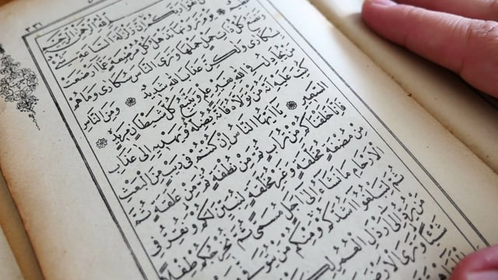 عَظِيمٌ يَوْمَ تَرَوْنَهَا تَذْهَلُ كُلُّ مُرْضِعَةٍ عَمَّا أَرْضَعَتْ
وَتَضَعُ كُلُّ ذَاتِ حَمْلٍ حَمْلَهَا وَتَرَى النَّاسَ سُكَارَى وَمَا هُمْ
بِسُكَارَى وَلَكِنَّ عَذَابَ اللَّهِ شَدِيدٌ وَمِنَ النَّاسِ
مَنْ يُجَادِلُ فِي اللَّهِ بِغَيْرِ عِلْمٍ وَيَتَّبِعُ كُلَّ شَيْطَانٍ مَرِيدٍ
كُتِبَ عَلَيْهِ أَنَّهُ مَنْ تَوَلَّاهُ فَأَنَّهُ يُضِلُّهُ وَيَهْدِيهِ إِلَى عَذَابِ
السَّعِيرِ يَا أَيُّهَا النَّاسُ إِنْ كُنْتُمْ فِي رَيْبٍ مِنَ الْبَعْثِ
فَإِنَّا خَلَقْنَاكُمْ مِنْ تُرَابٍ ثُمَّ مِنْ نُطْفَةٍ ثُمَّ مِنْ عَلَقَةٍ ثُمَّ
مِنْ مُضْغَةٍ مُخَلَّقَةٍ وَغَيْرِ مُخَلَّقَةٍ لِنُبَيِّنَ لَكُمْ وَنُقِرُّ فِي
الْأَرْحَامِ مَا نَشَاءُ إِلَى أَجَلٍ مُسَمًّى ثُمَّ نُخْرِجُكُمْ طِفْلًا
ثُمَّ لِتَبْلُغُوا أَشُدَّكُمْ وَمِنْكُمْ مَنْ يُتَوَفَّى
مَنْ يُرَدُّ إِلَى أَرْذَلِ الْعُمُرِ
شَيْئًا وَتَرَى